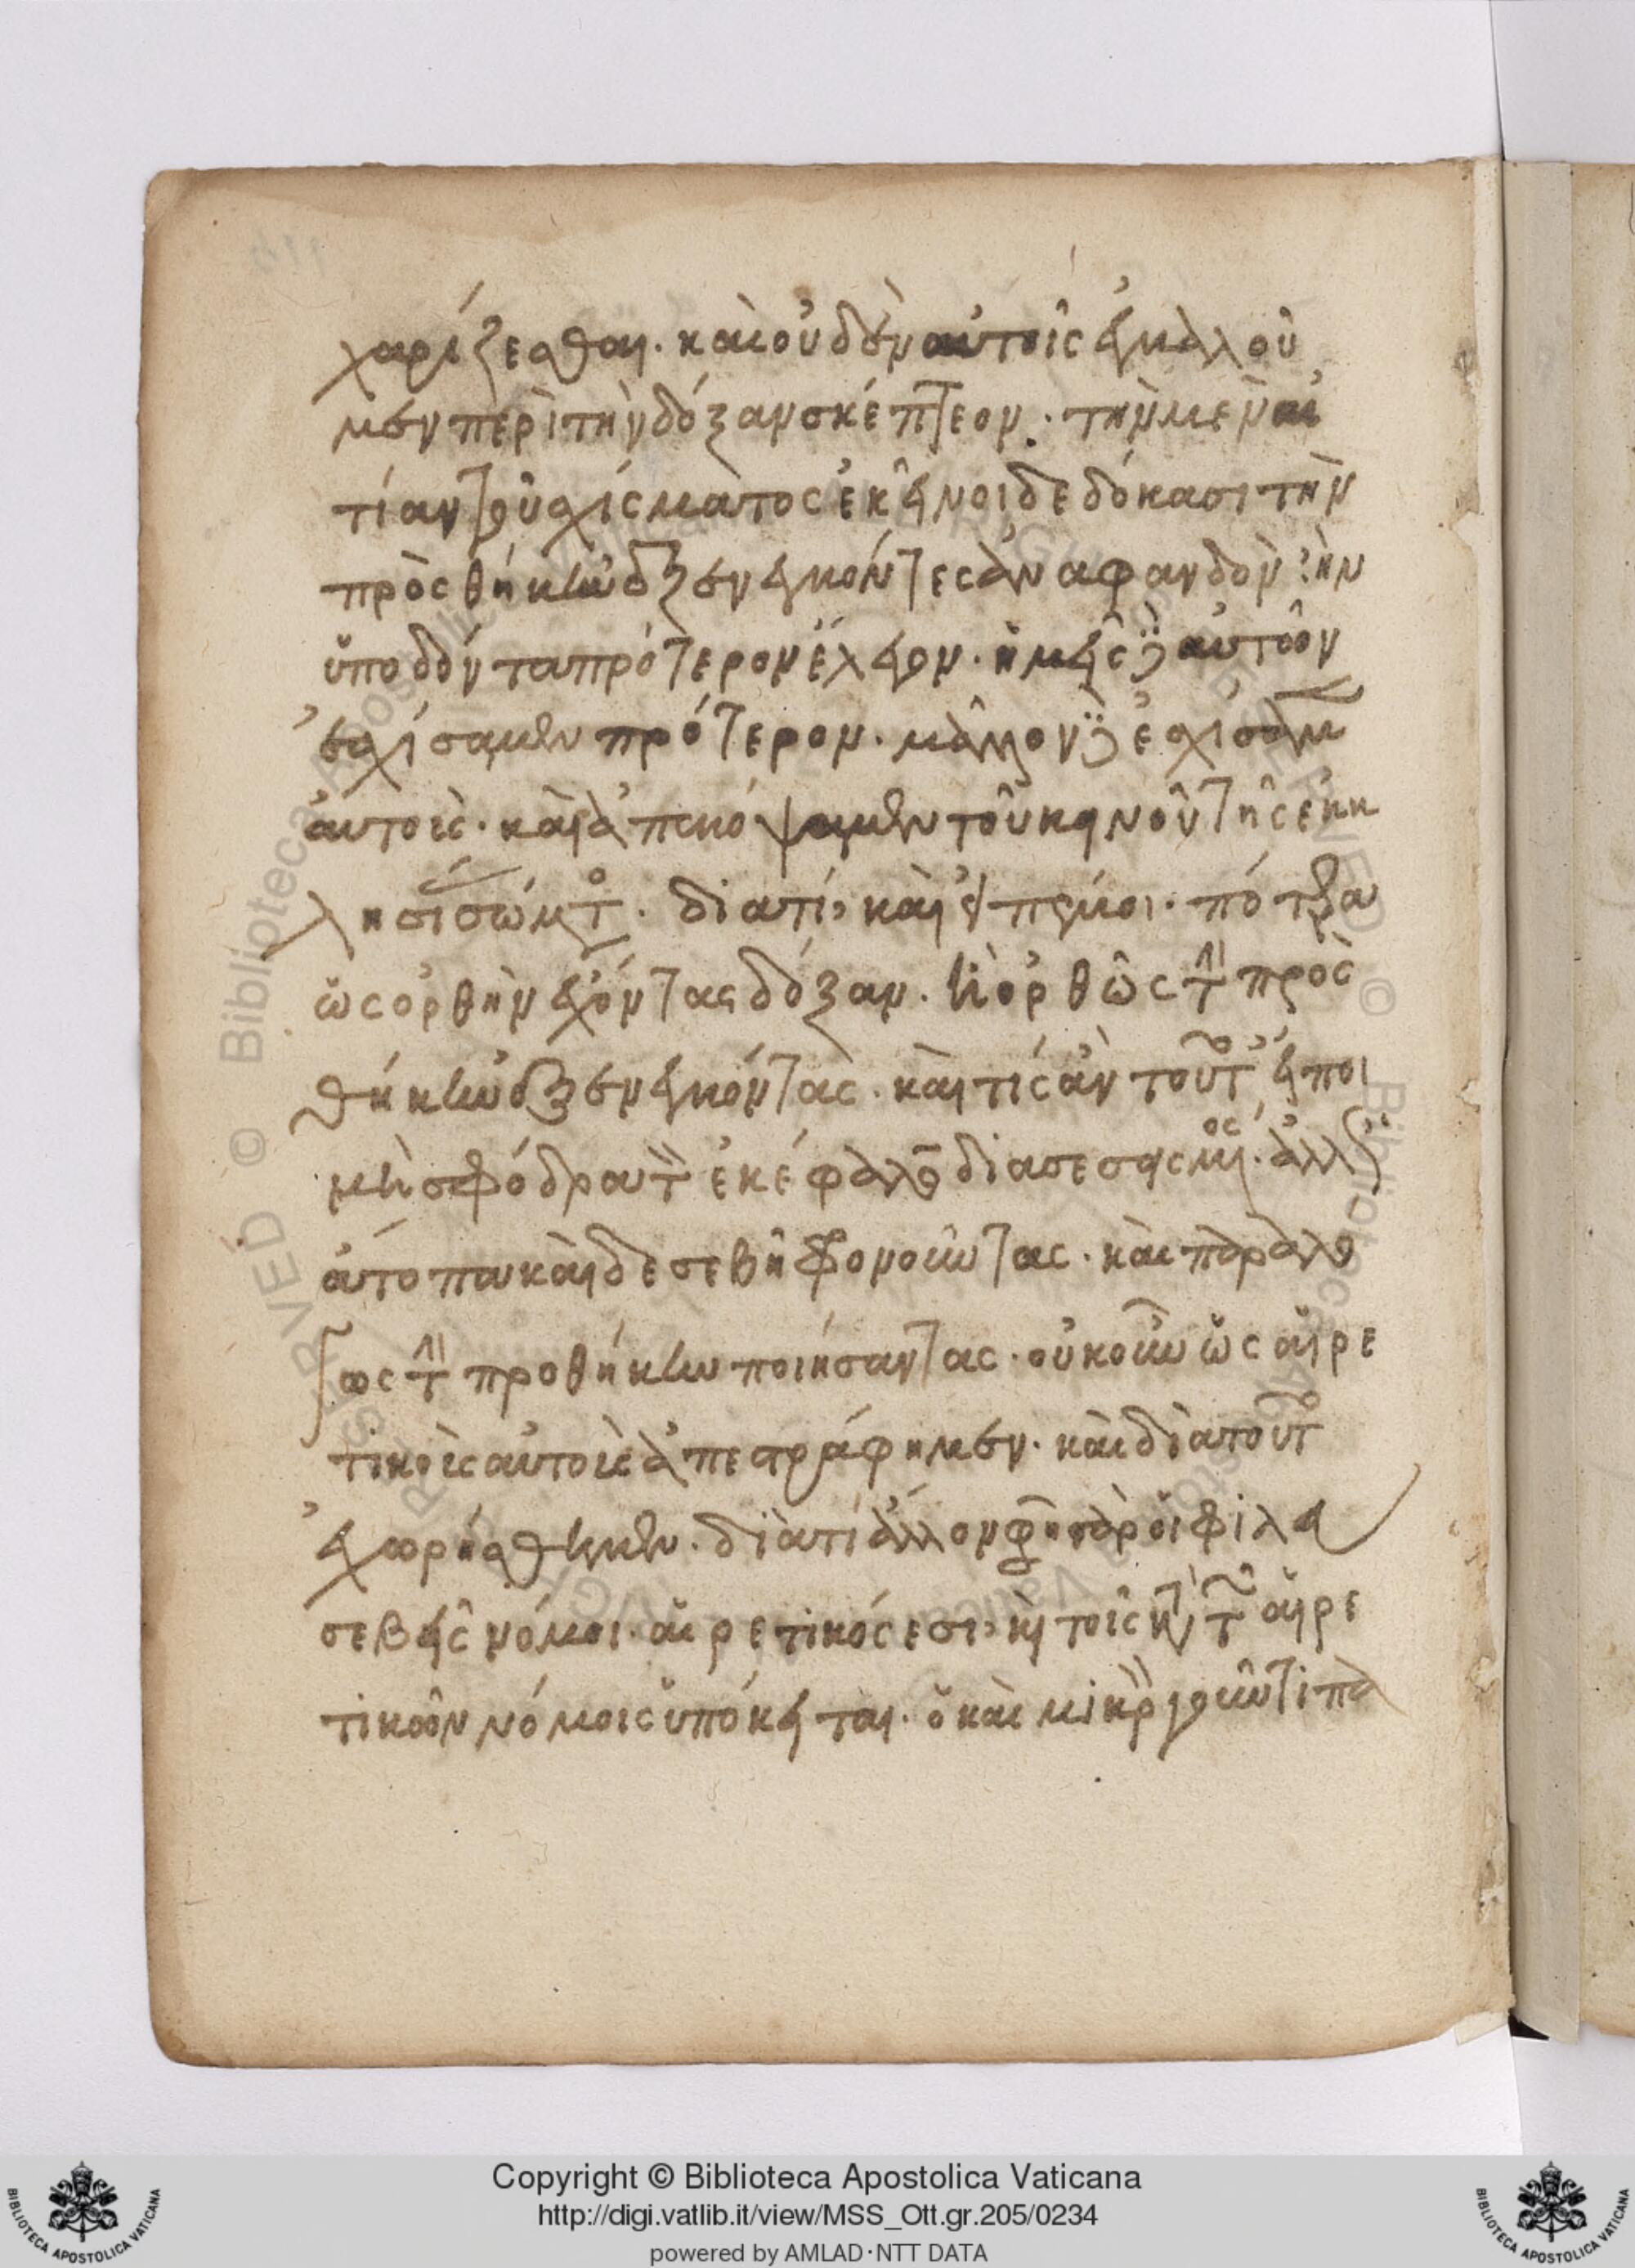 χαρίζεσθαι. καὶ οὐδὲν αὐτοῖς ἐγκαλοῦ
μεν περὶ τὴν δόξαν σκέπτεον. τὴν μὲν αἰ
τίαν τοῦ σχίσματος ἐκεῖνοι δεδώκασι τὴν
προσθήκην ἐξενεγκόντες ἀναφανδὸν ἣν
ὑπόδόντα πρότερον ἔλεγον. ἡμεῖς δὲ αὐτῶν
ἐσχίσαμεν πρότερον. μᾶλλον δὲ ἐσχίσαμεν
αὐτοὺς. καὶ ἀπεκόψαμεν τοῦ κοινοῦ τῆς ἐκκ
λησίας σώματος. διατί, καὶ εἰπέ μοι. πότερα
ὡς ὀρθὴν ἔχοντας δόξαν. ἢ ὀρθῶς τὴν προσ
θήκην ἐξενεγκόντας. καὶ τίς ἂν τοῦτο εἴποι
μὴ σφόδρα τὸν ἐγκέφαλον διασεσεισμένος. ἀλλ' ὡς
ἄτοπα καὶ δυσσεβῆ φρονοῦντας. καὶ παραλό
γως τὴν προσθήκην ποιήσαντας. οὐκοῦν ὡς αἱρε
τικοὺς αὐτοὺς ἀπεστράφημεν. καὶ διὰ τοῦτο
ἐχωρίσθημεν. διατί ἄλλο φησὶ γὰρ οἱ φιλευ
σεβεῖς νόμοι. αἱρετικός ἐστι, καὶ τοῖς κατὰ τῶν αἱρε
τικῶν νόμοις ὑπόκειται. ὁ καὶ μικρὸν γοῦν τι πα